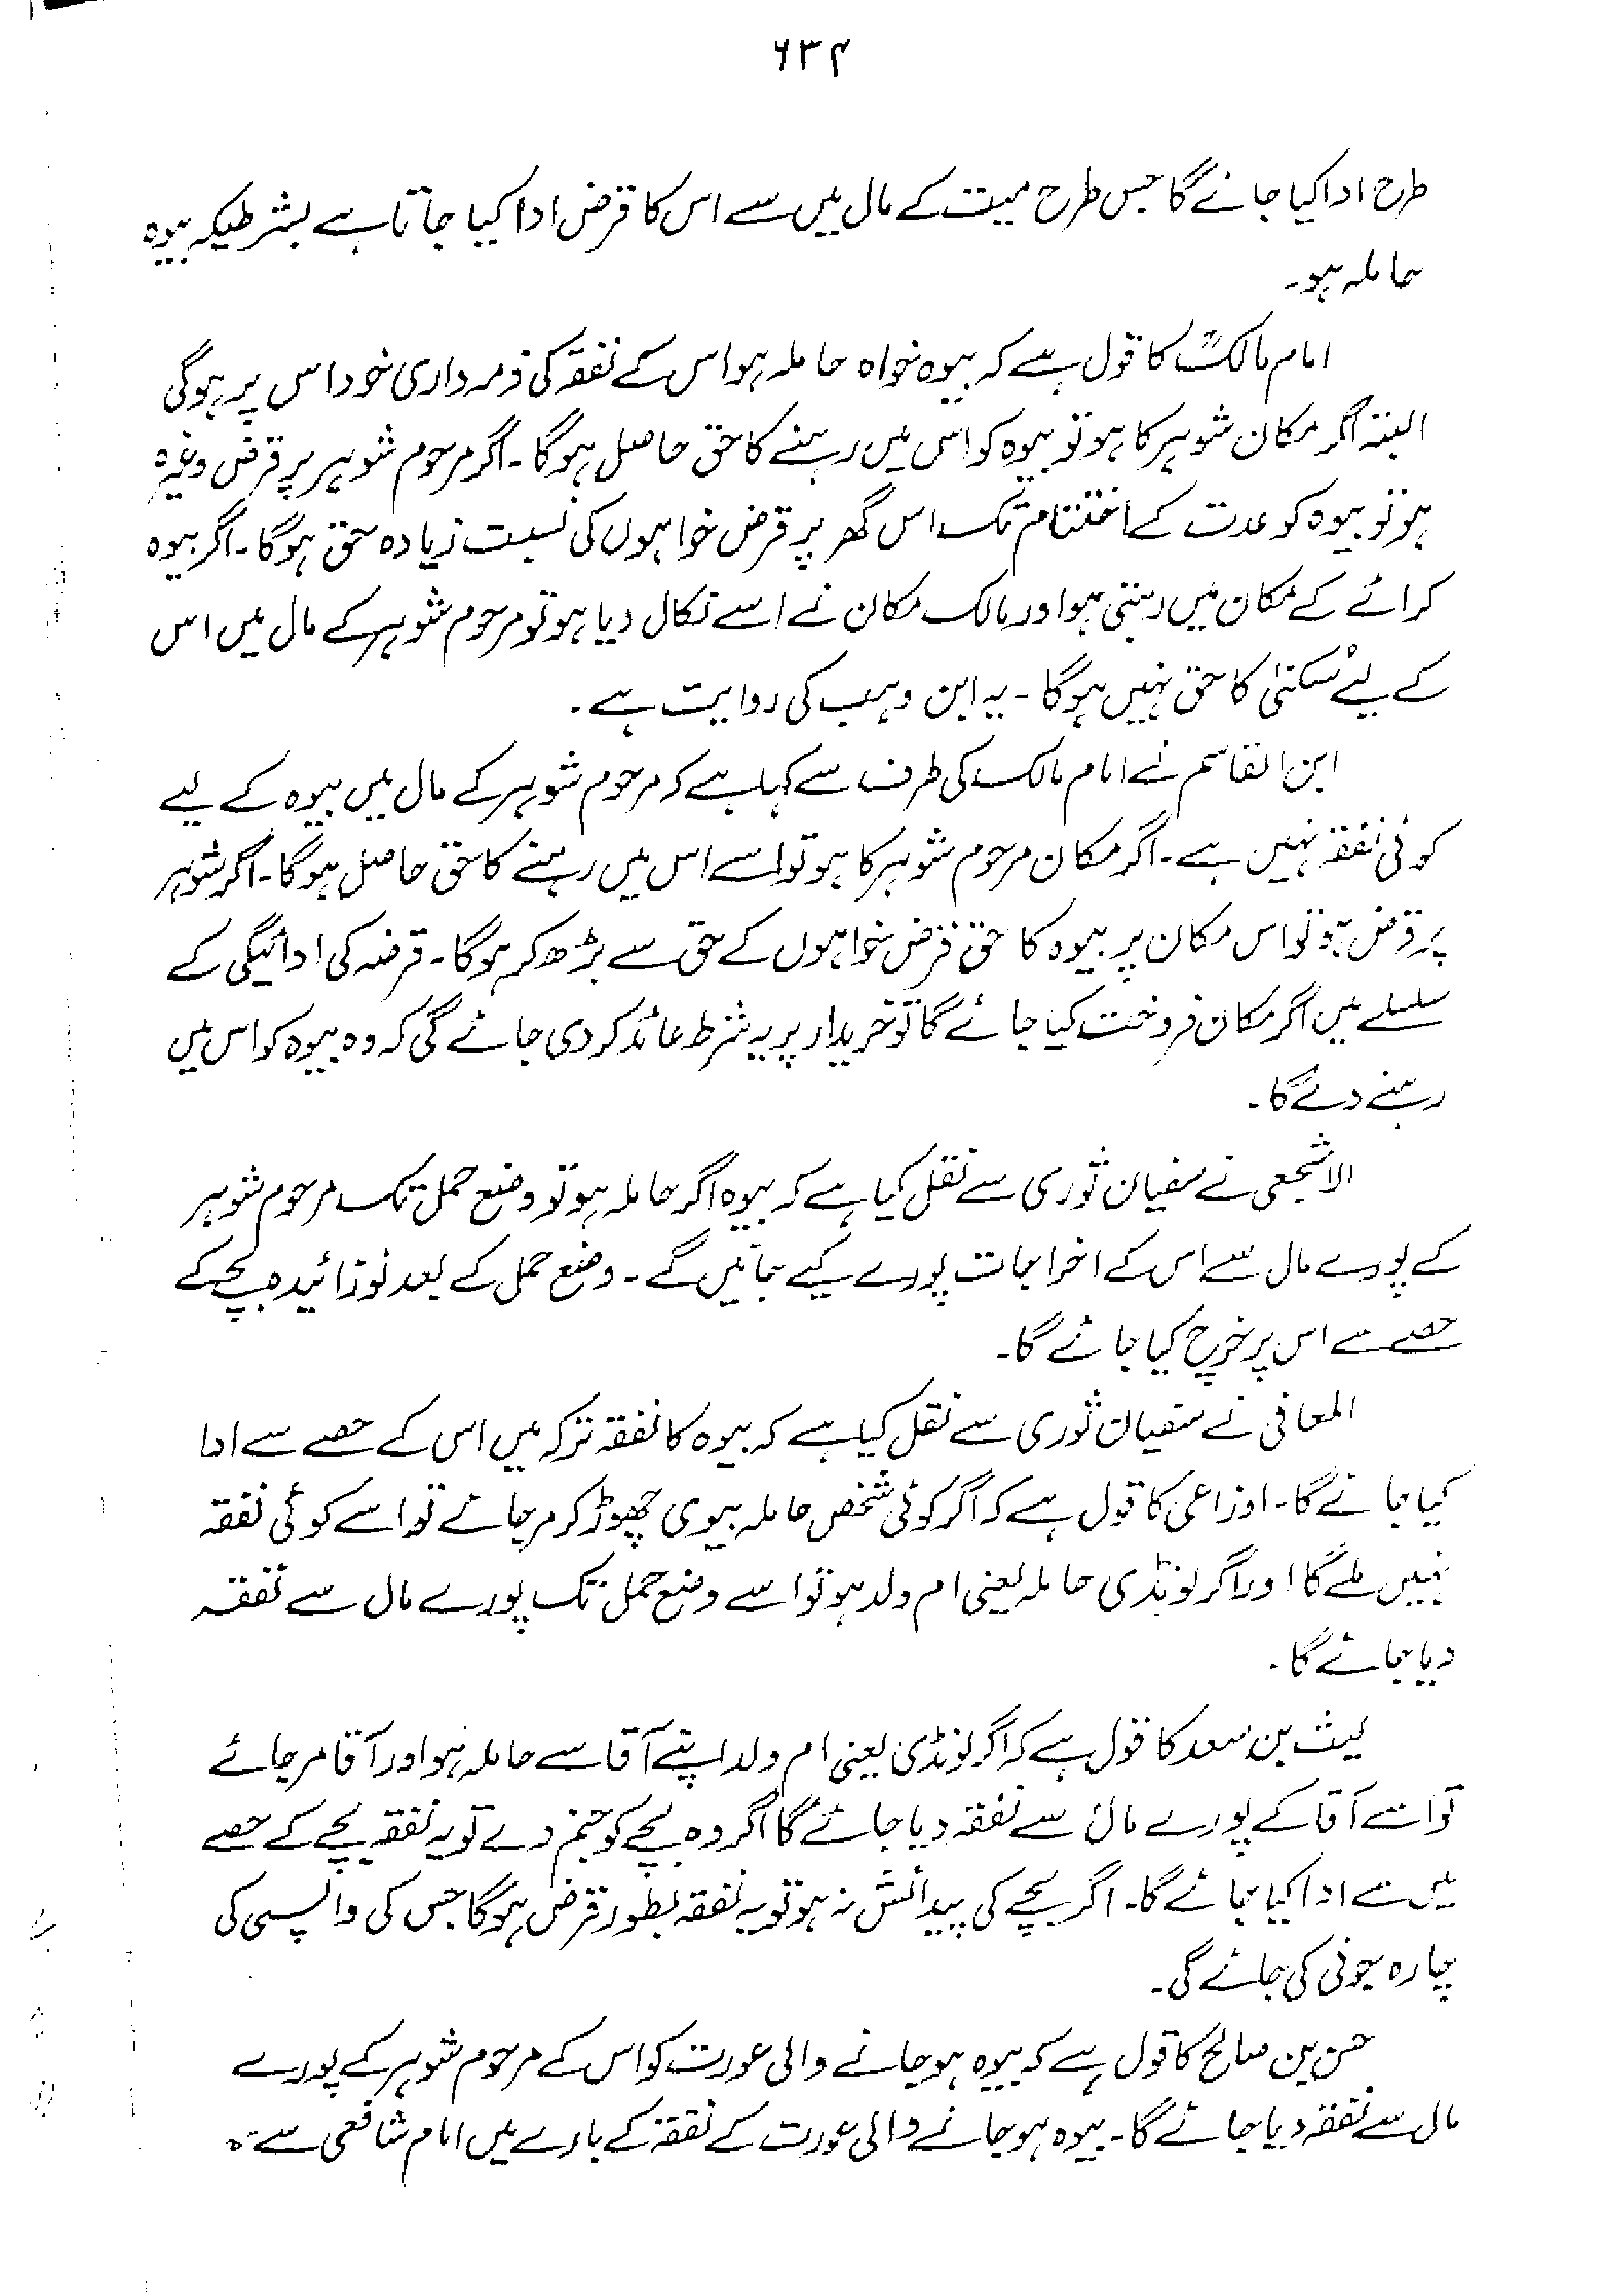 ۶۳۴
طرح ادا کیا جائے گا جس طرح میت کے مال میں سے اس کا قرض ادا کیا جاتا ہے بشرطیکہ بیوہ
حاملہ ہو۔
امام مالکؒ کا قول ہے کہ بیوہ خواہ حاملہ ہو اس کے نفقہ کی ذمہ داری خود اس پر ہوگی
البتہ اگر مکان شوہر کا ہو تو بیوہ کو اس میں رہنے کا حق حاصل ہوگا۔ اگر مرحوم شوہر پر قرض وغیرہ
ہو تو بیوہ کو عدت کے اختتام تک اس گھر پر قرض خواہوں کی نسبت زیادہ حق ہوگا۔ اگر بیوہ
کرائے کے مکان میں رہتی ہو اور مالک مکان نے اسے نکال دیا ہو تو مرحوم شوہر کے مال میں اس
کے لیے سُکنیٰ کا حق نہیں ہوگا۔ یہ ابن وہب کی روایت ہے۔
ابن القاسم نے امام مالک کی طرف سے کہا ہے کہ مرحوم شوہر کے مال میں بیوہ کے لیے
کوئی نفقہ نہیں ہے۔ اگر مکان مرحوم شوہر کا ہو تو اسے اس میں رہنے کا حق حاصل ہوگا۔ اگر شوہر
پر قرض ہو تو اس مکان پر بیوہ کا حق قرض خواہوں کے حق سے بڑھ کر ہوگا۔ قرضہ کی ادائیگی کے
سلسلے میں اگر مکان فروخت کیا جائے گا تو خریدار پر یہ شرط عائد کر دی جائے گی کہ وہ بیوہ کو اس میں
رہنے دے گا۔
الاشجعی نے سفیان ثوری سے نقل کیا ہے کہ بیوہ اگر حاملہ ہو تو وضع حمل تک مرحوم شوہر
کے پورے مال سے اس کے اخراجات پورے کیے جائیں گے۔ وضع حمل کے بعد نوزائیدہ بچے کے
حصے سے اس پر خرچ کیا جائے گا۔
المعافی نے سفیان ثوری سے نقل کیا ہے کہ بیوہ کا نفقہ ترکہ میں اس کے حصے سے ادا
کیا جائے گا۔ اوزاعی کا قول ہے کہ اگر کوئی شخص حاملہ بیوی چھوڑ کر مر جائے تو اسے کوئی نفقہ
نہیں ملے گا اور اگر لونڈی حاملہ یعنی ام ولد ہو تو اسے وضع حمل تک پورے مال سے نفقہ
دیا جائے گا۔
لیث بن سعد کا قول ہے کہ اگر لونڈی یعنی ام ولد اپنے آقا سے حاملہ ہو اور آقا مر جائے
تو اسے آقا کے پورے مال سے نفقہ دیا جائے گا اگر وہ بچے کو جنم دے تو یہ نفقہ بچے کے حصے
میں سے ادا کیا جائے گا۔ اگر بچے کی پیدائش نہ ہو تو یہ نفقہ بطور قرض ہوگا جس کی واپسی کی
چارہ جوئی کی جائے گی۔
حسن بن صالح کا قول ہے کہ بیوہ ہو جانے والی عورت کو اس کے مرحوم شوہر کے پورے
مال سے نفقہ دیا جائے گا۔ بیوہ ہو جانے والی عورت کے نفقہ کے بارے میں امام شافعی سے